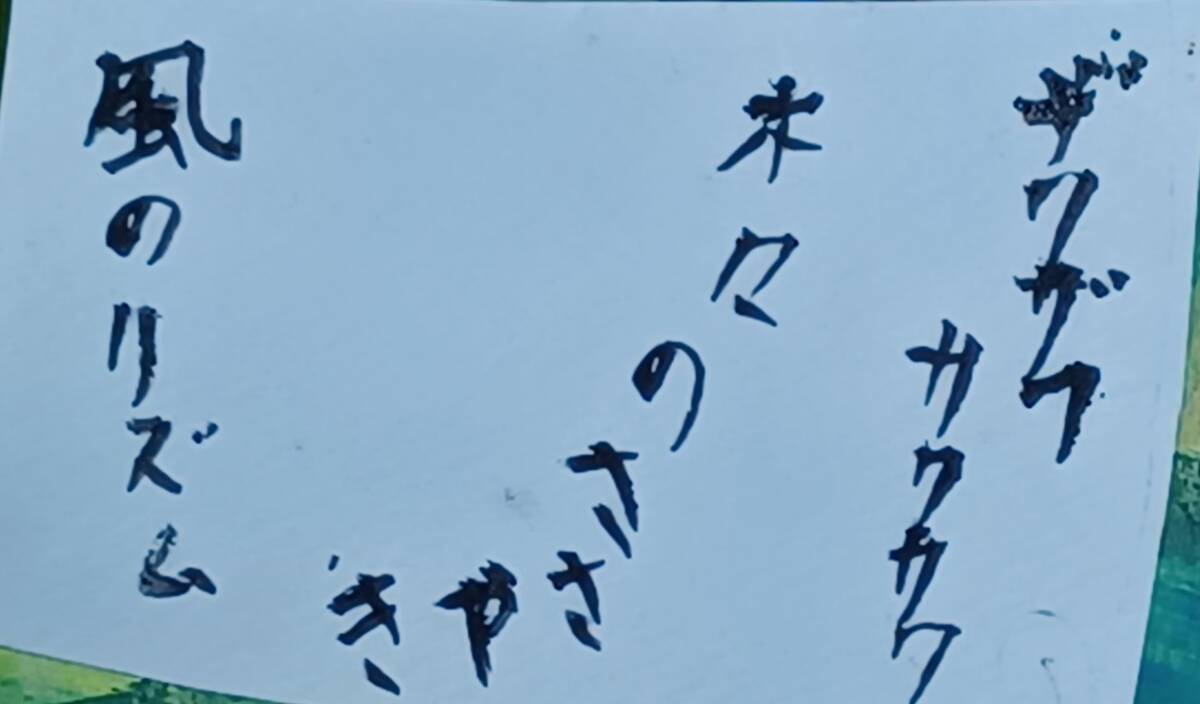 ザワザワ
サワサワ
木々のささやき
風のリズム